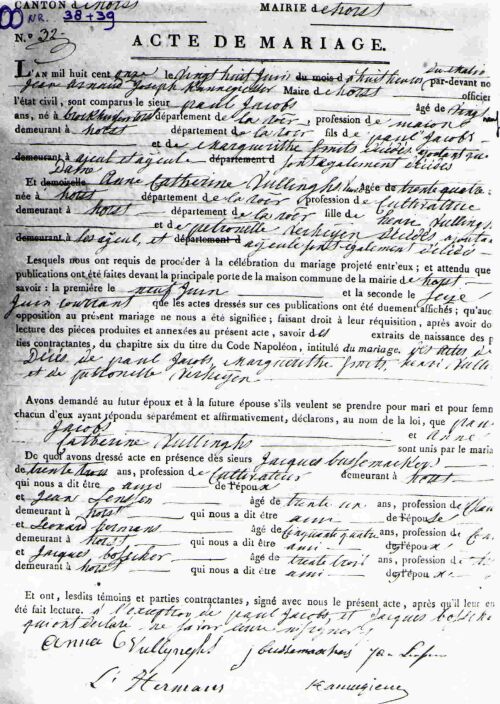 CANTON d'Horst MAIRIE d'Horst
NR. 38+39
N.° 32
ACTE DE MARIAGE.
L'AN mil huit cent onze le vingt huit Juin du mois d à huit heures du matin
par-devant no
Jean Arnaud Joseph Maire de horst officier
l'état civil, sont comparus le sieur paul Jacobs âgé de
ans, né à département de la roer, profession de
demeurant à horst département de la roer fils de paul Jacobs
et de Marguerithe Smits
demeurant à département d sont également
Dame
Et demoiselle Anne Catherine Vullinghs âgée de trente quatre
née à horst département de la roer profession de Cultivatrice
demeurant à horst département de la roer fille de henri Vullings
et de petronelle Verheyen décédés, ajoutant
demeurant à les ayeul, et département d ayeule sont également décédés
Lesquels nous ont requis de procéder à la célébration du mariage projeté entr'eux; et attendu que
publications ont été faites devant la principale porte de la maison commune de la mairie de horst
savoir: la première le neuf Juin et la seconde le seize
Juin courrant que les actes dressés sur ces publications ont été duement affichés; qu'auc
opposition au présent mariage ne nous a été signifiée; faisant droit à leur réquisition, après avoir do
lecture des pièces produites et annexées au présent acte, savoir des extraits de naissance des p
ties contractantes, du chapitre six du titre du Code Napoléon, intitulé du mariage. des actes de
Décès de paul Jacobs, Marguerithe Smits, henri Vulli
et de petronelle Verheyen
Avons demandé au futur époux et à la future épouse s'ils veulent se prendre pour mari et pour femm
chacun d'eux ayant répondu séparément et affirmativement, déclarons, au nom de la loi, que paul
Jacobs et anne
Catherine Vullinghs sont unis par le maria
De quoi avons dressé acte en présence des sieurs Jacques bussemackers
de trente trois ans, profession de Cultivateur demeurant à horst
qui nous a dit être ami de l'époux
et Jean Jenssen âgé de trente six ans, profession de
demeurant à horst qui nous a dit être ami de l'épouse
et Leonard hermans âgé de Cinquante quatre ans, profession de
demeurant à horst qui nous a dit être ami de l'époux
et Jacques âgé de trente trois ans, profession de
demeurant à horst qui nous a dit être ami de l'époux
Et ont, lesdits témoins et parties contractantes, signé avec nous le présent acte, après qu'il leur en
été fait lecture. à l'exception de paul Jacobs, et Jacques
qui ont déclaré ne savoir signer
Anna C Vullyneghs j bussemackers
L: Hermans